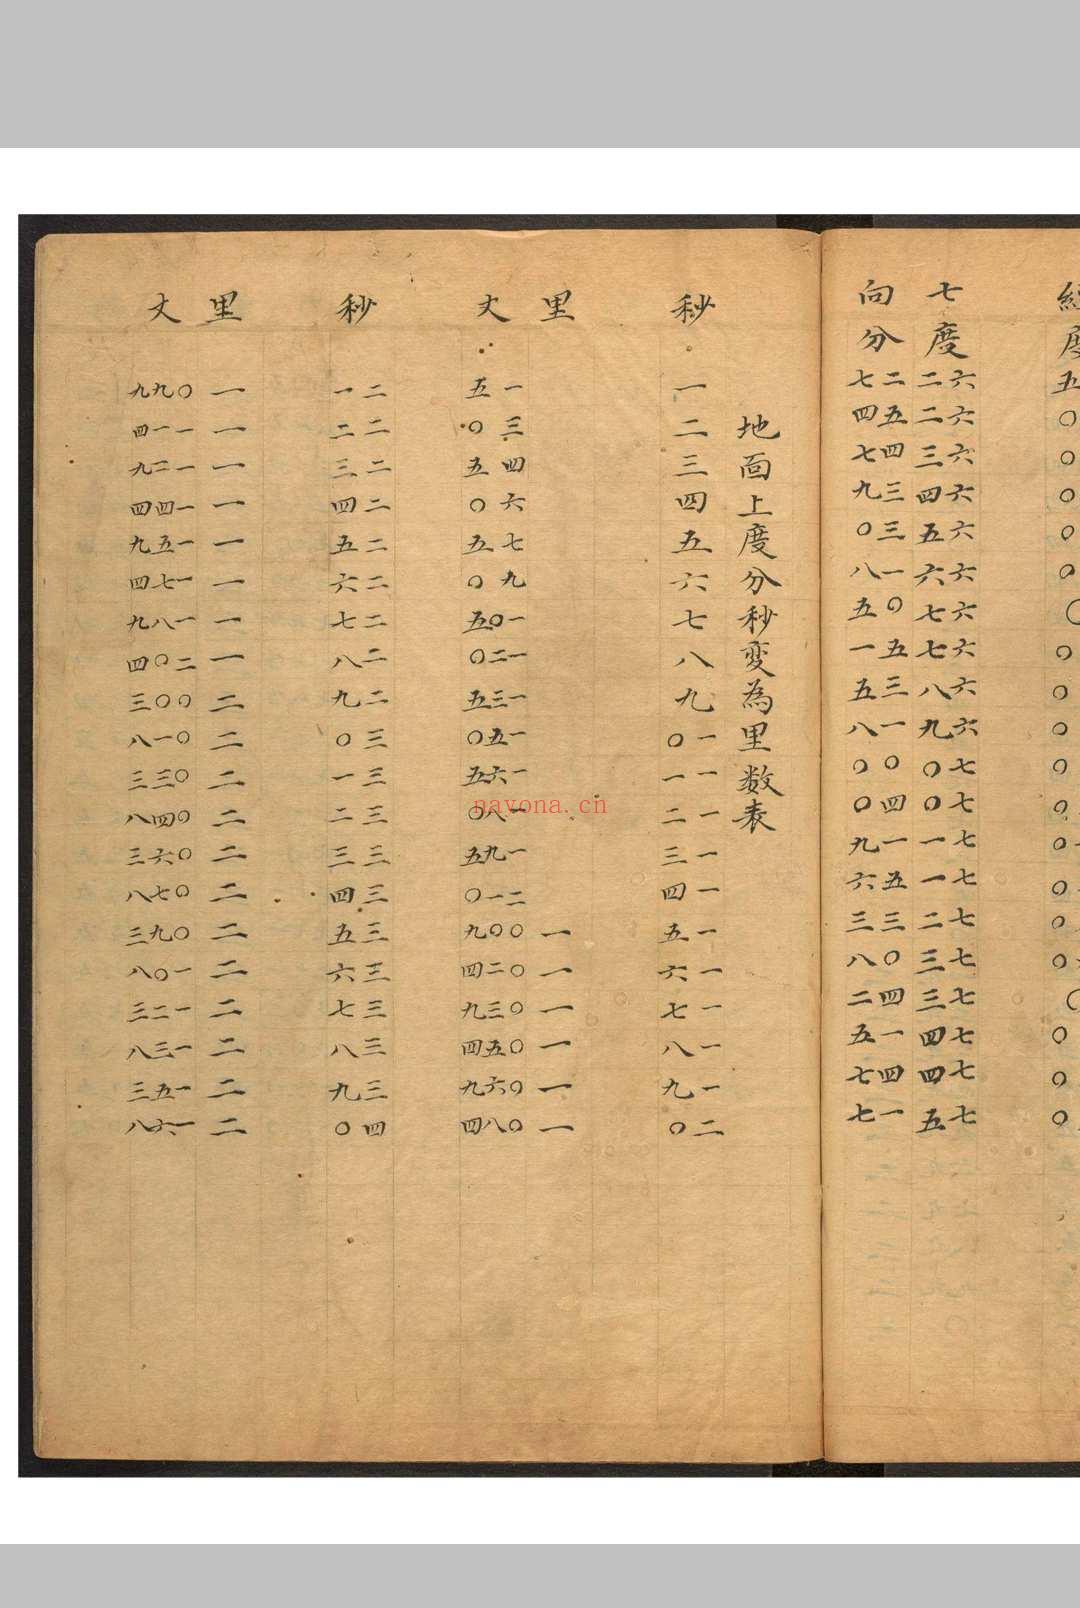 七度
六二 六二 六三 六四 六五 六六 六七 六七 六八 六九 七〇 七〇 七一 七一 七二 七三 七三 七四 七四 七五
向分
二七 五四 四七 三九 三〇 一八 〇五 五一 三五 一八 〇〇 四〇 一九 五六 三三 〇八 四二 一五 四七 一七
地面上度分秒変為里数表
秒
一 二 三 四 五 六 七 八 九 一〇 一一 一二 一三 一四 一五 一六 一七 一八 一九 二〇
里
一 一 一 一 一 一
丈
一五 三〇 四五 六〇 七五 九〇 一〇五 一二〇 一三五 一五〇 一六五 一八〇 一九五 二一〇 〇〇九 〇二四 〇三九 〇五四 〇六九 〇八四
秒
二一 二二 二三 二四 二五 二六 二七 二八 二九 三〇 三一 三二 三三 三四 三五 三六 三七 三八 三九 四〇
里
一 一 一 一 一 一 一 一 二 二 二 二 二 二 二 二 二 二 二 二
丈
〇九九 一一四 一二九 一四四 一五九 一七四 一八九 二〇四 〇〇三 〇一八 〇三三 〇四八 〇六三 〇七八 〇九三 一〇八 一二三 一三八 一五三 一六八
nayona.cn